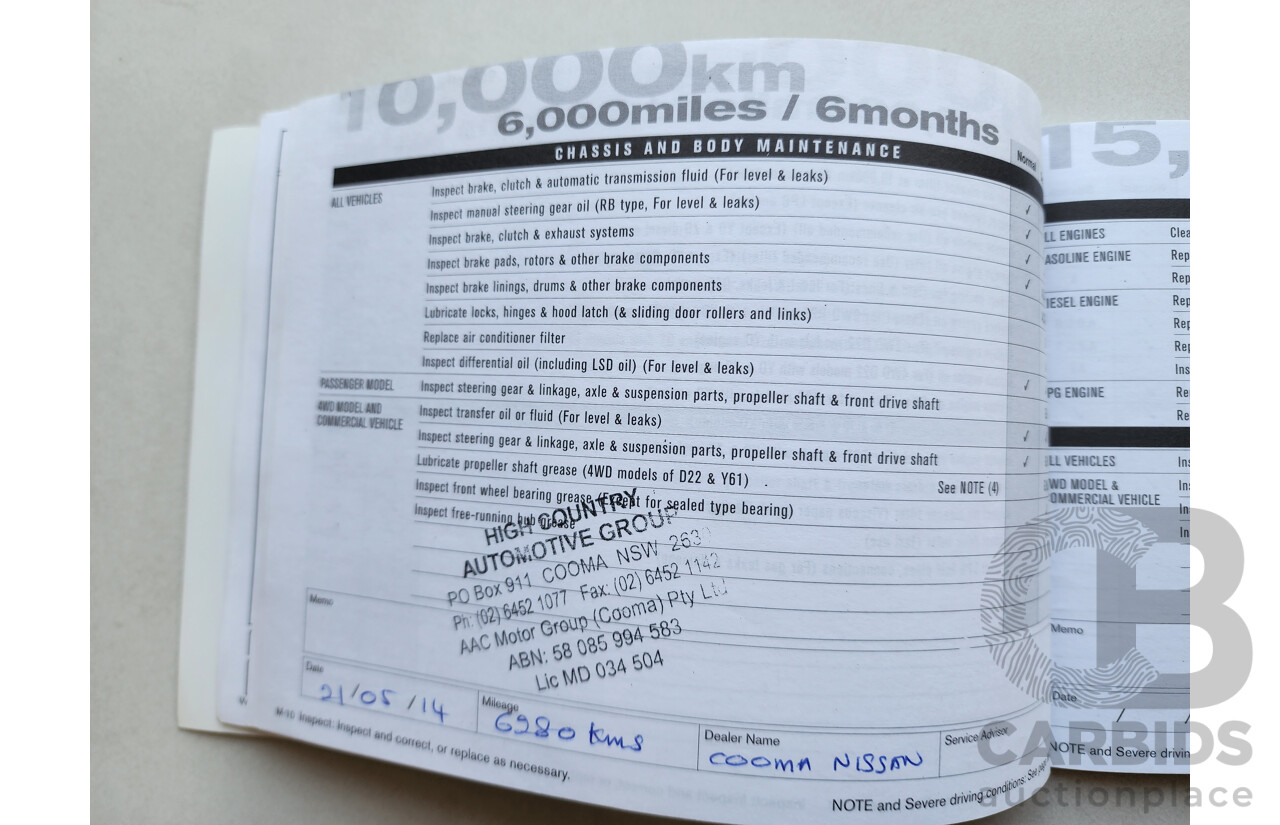 10,000km
6,000miles / 6months
CHASSIS AND BODY MAINTENANCE
Normal
ALL VEHICLES
Inspect brake, clutch & automatic transmission fluid (For level & leaks)
✓
Inspect manual steering gear oil (RB type, For level & leaks)
✓
Inspect brake, clutch & exhaust systems
✓
Inspect brake pads, rotors & other brake components
✓
Inspect brake linings, drums & other brake components
Lubricate locks, hinges & hood latch (& sliding door rollers and links)
Replace air conditioner filter
Inspect differential oil (including LSD oil) (For level & leaks)
✓
PASSENGER MODEL
Inspect steering gear & linkage, axle & suspension parts, propeller shaft & front drive shaft
4WD MODEL AND
COMMERCIAL VEHICLE
Inspect transfer oil or fluid (For level & leaks)
✓
Inspect steering gear & linkage, axle & suspension parts, propeller shaft & front drive shaft
✓
Lubricate propeller shaft grease (4WD models of D22 & Y61)
See NOTE (4)
Inspect front wheel bearing grease (Except for sealed type bearing)
Inspect free-running hub grease
HIGH COUNTRY
AUTOMOTIVE GROUP
PO Box 911 COOMA NSW 263
Ph: (02) 6452 1077 Fax: (02) 6452 1142
AAC Motor Group (Cooma) Pty Ltd
ABN: 58 085 994 583
Lic MD 034 504
Memo
Date
21/05/14
Mileage
6280 kms
Dealer Name
COOMA NISSAN
Service Advisor
M-10 Inspect: Inspect and correct, or replace as necessary.
NOTE and Severe driving conditions: See
15,
LL ENGINES
Clea
ASOLINE ENGINE
Rep
Rep
IESEL ENGINE
Rep
Rep
Rep
Ins
PG ENGINE
Re
Re
LL VEHICLES
Ins
WD MODEL &
OMMERCIAL VEHICLE
In
In
In
Memo
Date
/ /
NOTE and Severe drivin
CB
CARBIDS
auctionplace